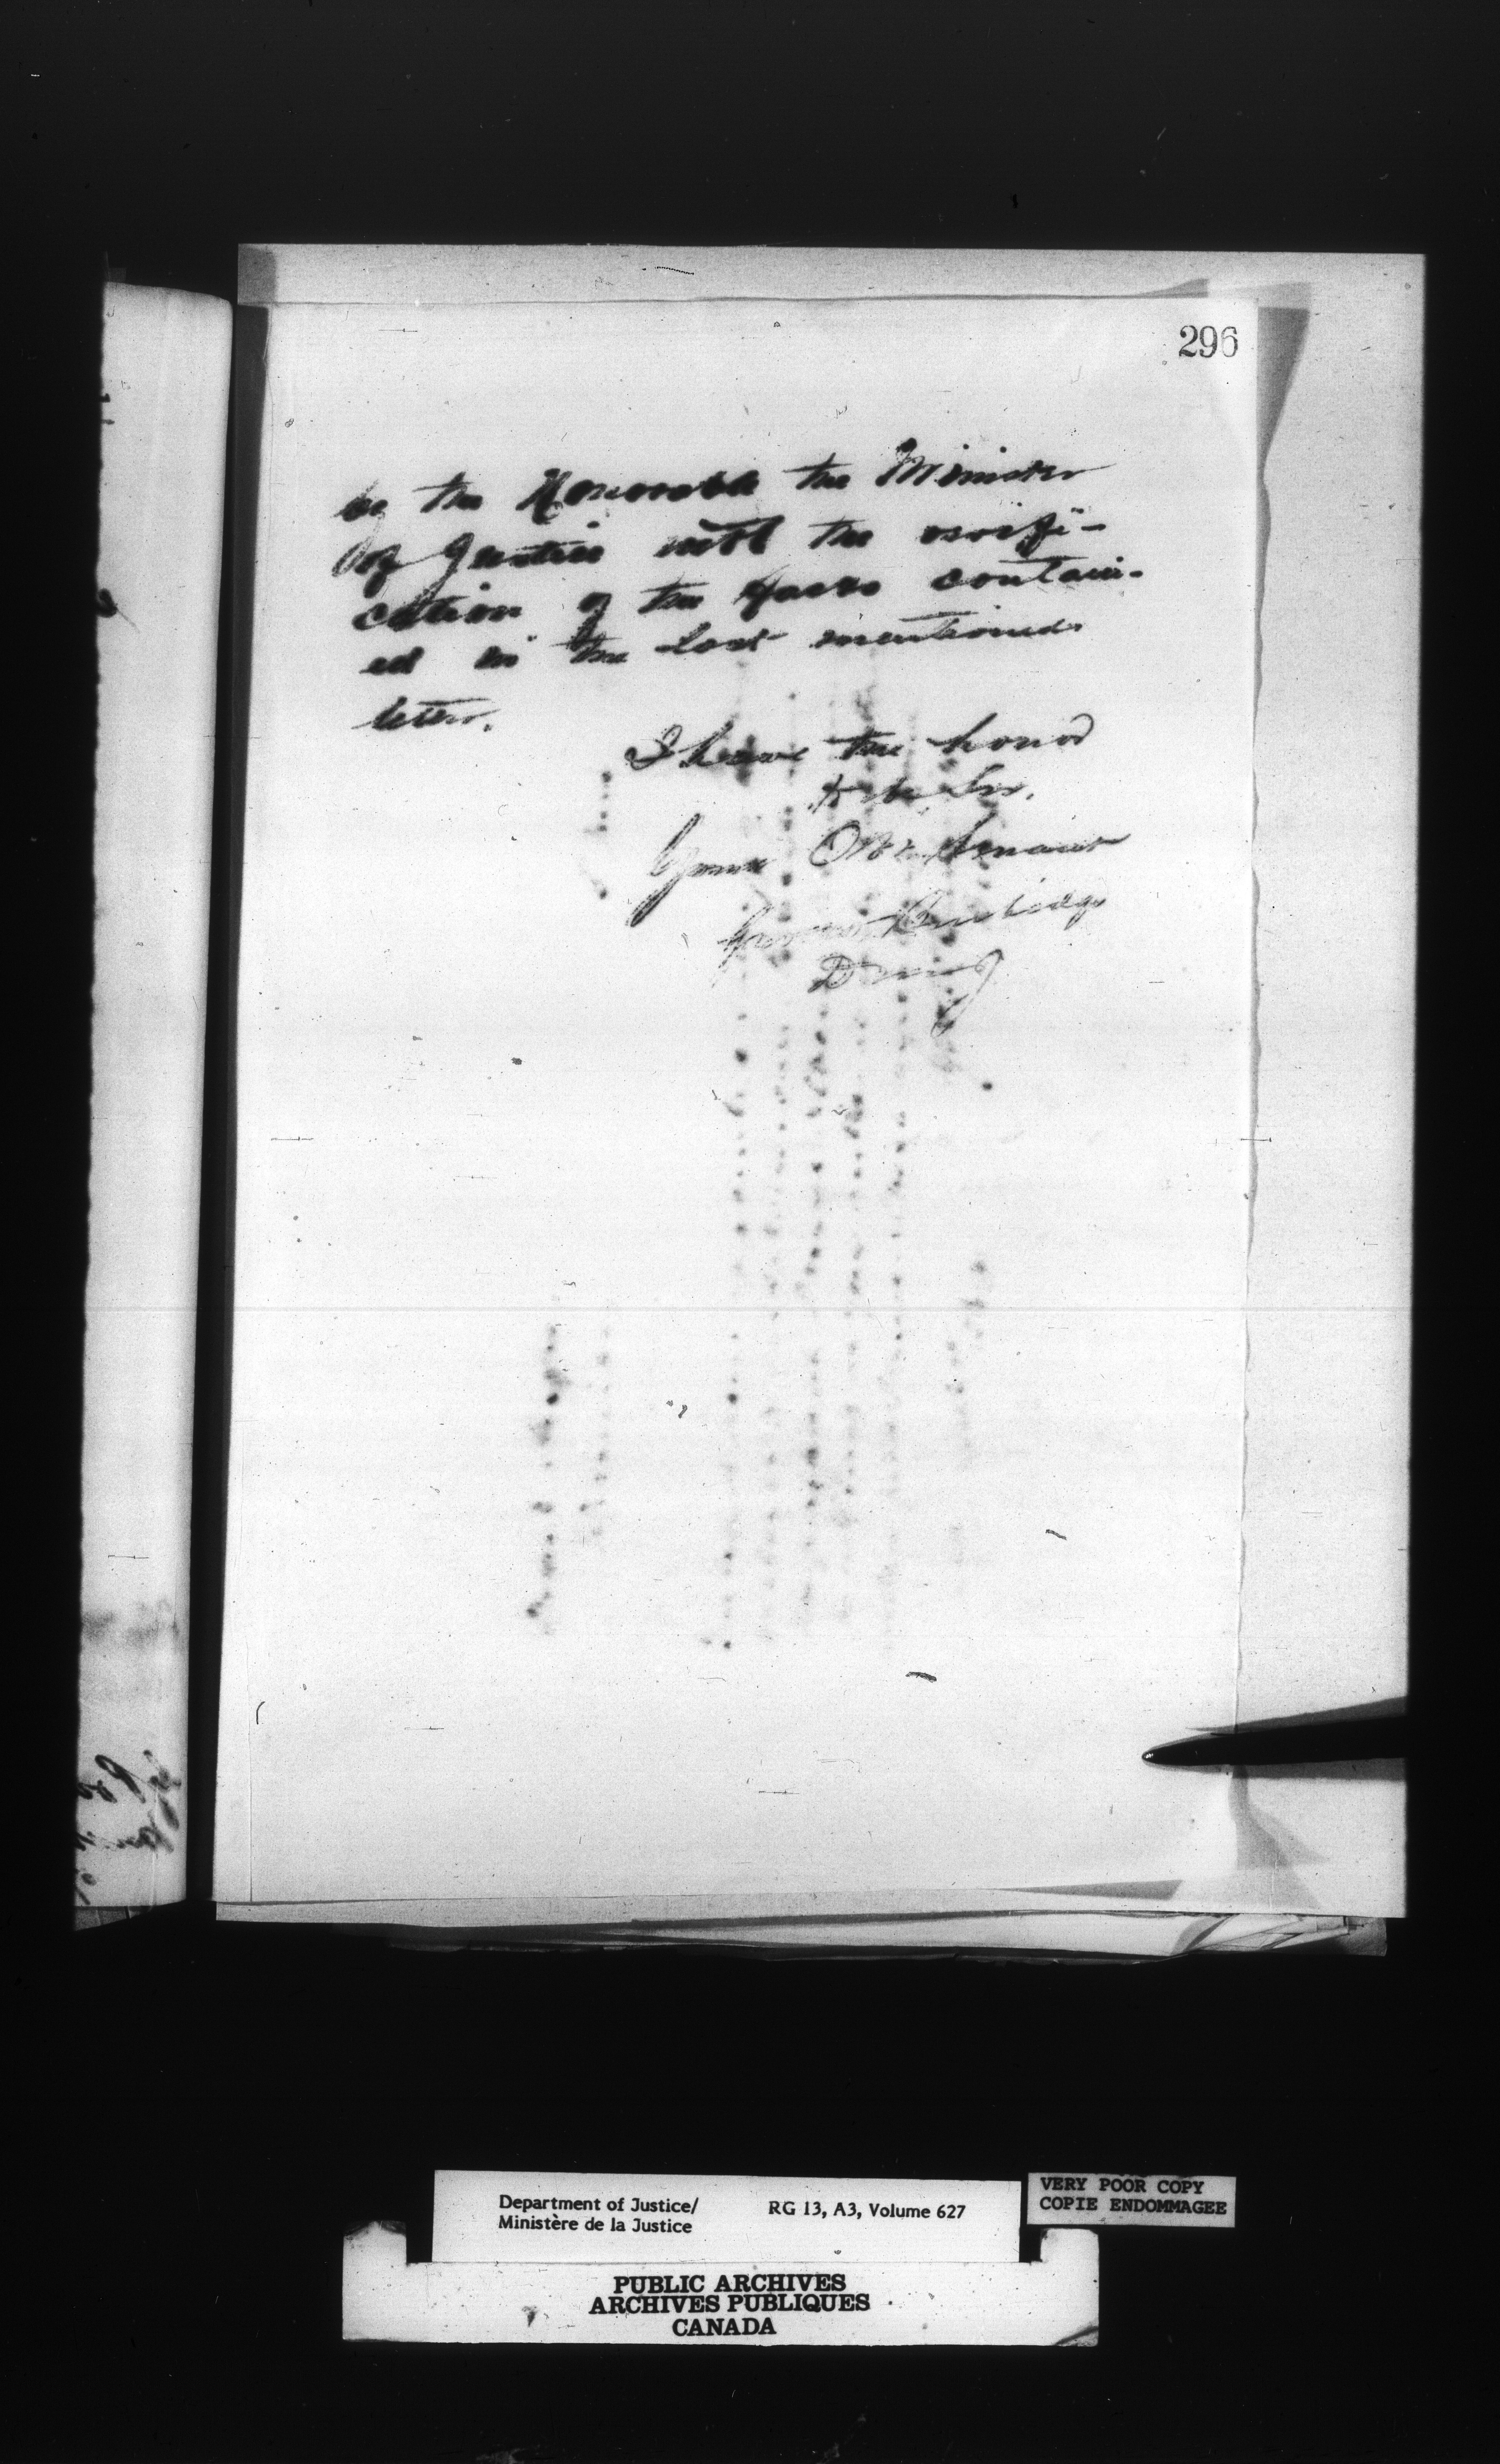 296
by the Honorable the Minister
of Justice until the verifi-
cation of the facts contain-
ed in the last mentioned
letter.
I have the honor
to be Sir,
Your Obt. Servant
Department of Justice/
Ministère de la Justice
RG 13, A3, Volume 627
VERY POOR COPY
COPIE ENDOMMAGEE
PUBLIC ARCHIVES
ARCHIVES PUBLIQUES
CANADA